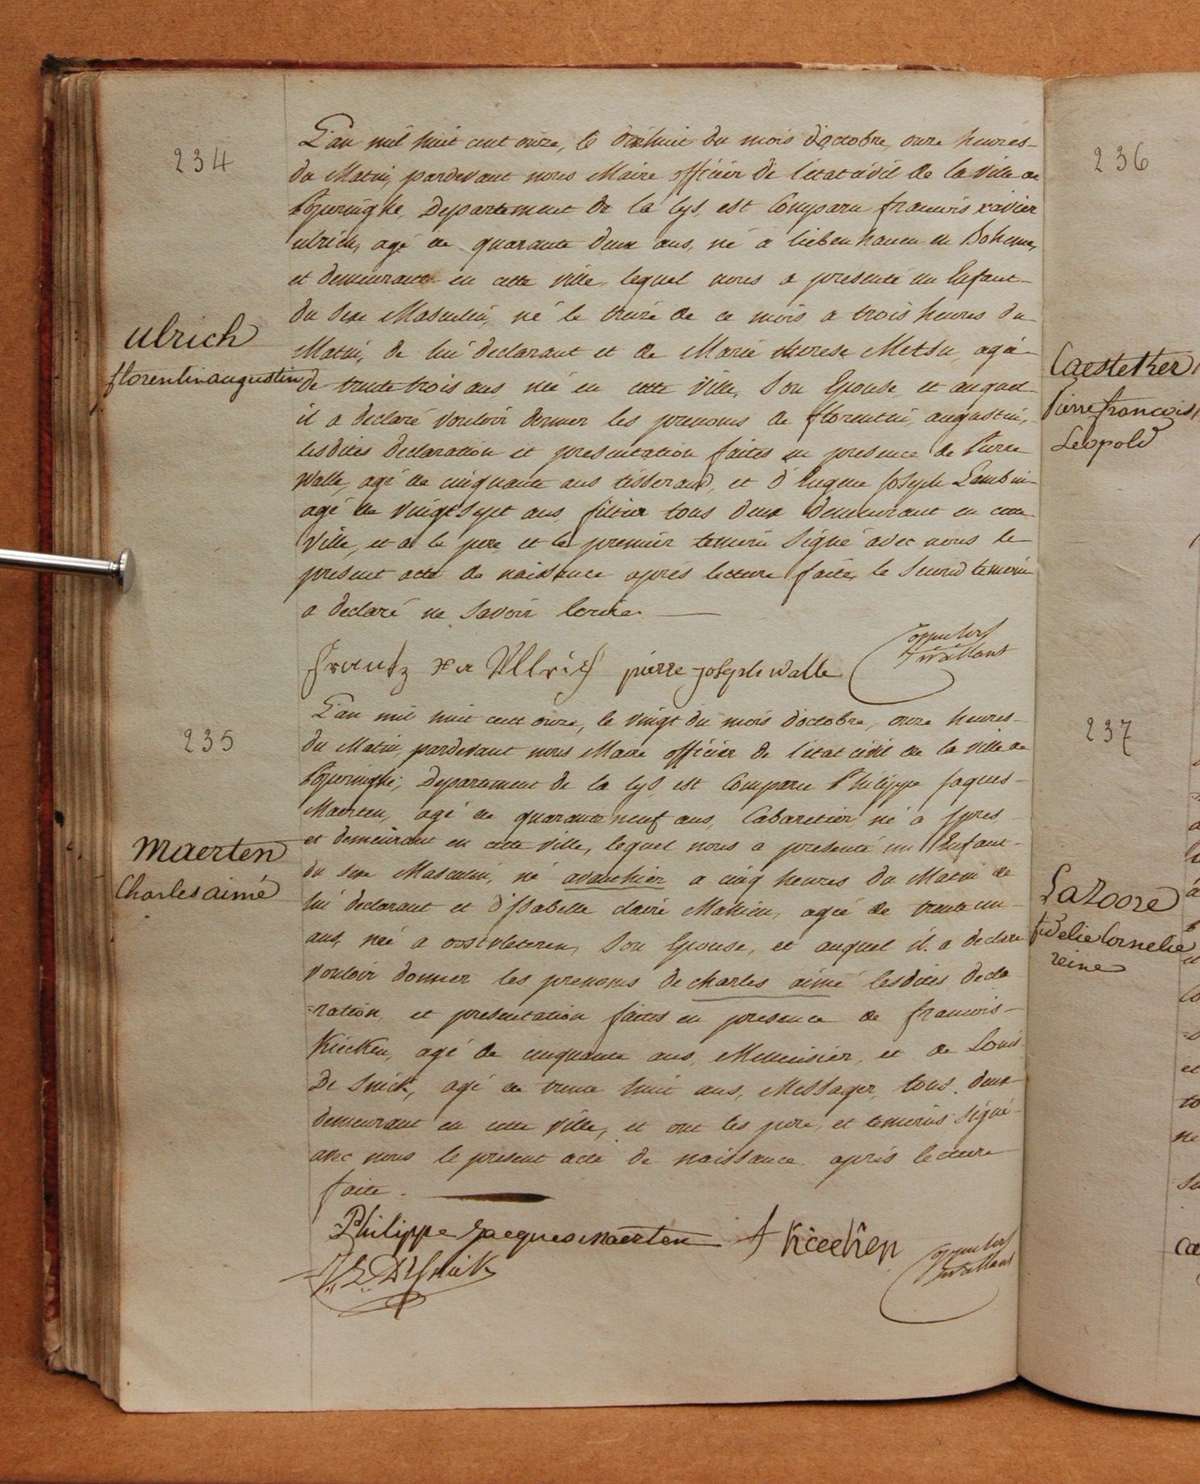 234
ulrich
florentin augustin
L'an mil huit cent onze, le dixhuit du mois d'octobre, onze heures
du Matin, pardevant nous Maire officier de l'etat civil de la ville de
Poperinghe, Departement de la Lys, est Comparu francois xavier
ulrich, agé de quarante deux ans, né à en Boheme,
et demeurant en cette ville, lequel nous a presenté un Enfant
du sexe Masculin, né le treize de ce mois a trois heures du
Matin, de lui declarant et de Marie therese Metsu, agée
de trente trois ans née en cette ville, Son Epouse, et auquel
il a declaré vouloir donner les prenoms de florentin, augustin,
lesdites declaration et presentation faites en presence de Pierre
Walle, agé de cinquante ans tisserand, et d'Eugene Joseph Lambin
agé de vingt Sept ans, tous deux demeurant en cette
ville, et a le pere et le premier temoin Signé avec nous le
present acte de naissance après lecture faite, le Second temoin
a declaré ne Savoir Ecrire.
frantz xa Ullrich pierre joseph walle
235
Maerten
Charles aimé
L'an mil huit cent onze, le vingt du mois d'octobre, onze heures
du Matin, pardevant nous Maire officier de l'etat civil de la ville de
Poperinghe, Departement de la Lys, est Comparu Philippe Jaques
Maerten, agé de quarante neuf ans, Cabaretier, né a Ypres
et demeurant en cette ville, lequel nous a presenté un Enfant
du sexe Masculin, né avanthier a cinq heures du Matin de
lui declarant et d'Isabelle claire Mahieu, agée de trente un
ans, née a oostvleteren, Son Epouse, et auquel il a declaré
vouloir donner les prenoms de charles aimé lesdites decla
=ration et presentation faites en presence de francois
Kiecken, agé de cinquante ans, Menuisier, et de Louis
De Snick, agé de trente huit ans, Messager, tous deux
demeurant en cette ville, et ont les pere, et temoins Signé
avec nous le present acte de naissance après lecture
faite.
Philippe Jacques Maerten f Kieeken
236
Caesteker
Pierre francois
Leopold
237
Lazoore
fidelie Cornelie
reine